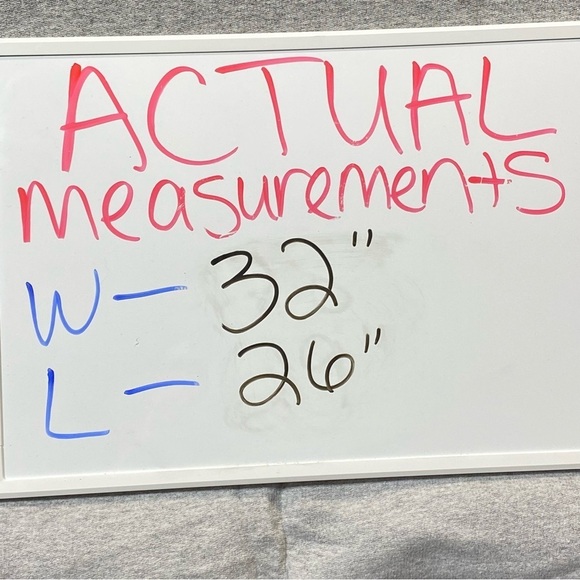 ACTUAL
measurements
W- 32"
L- 26"